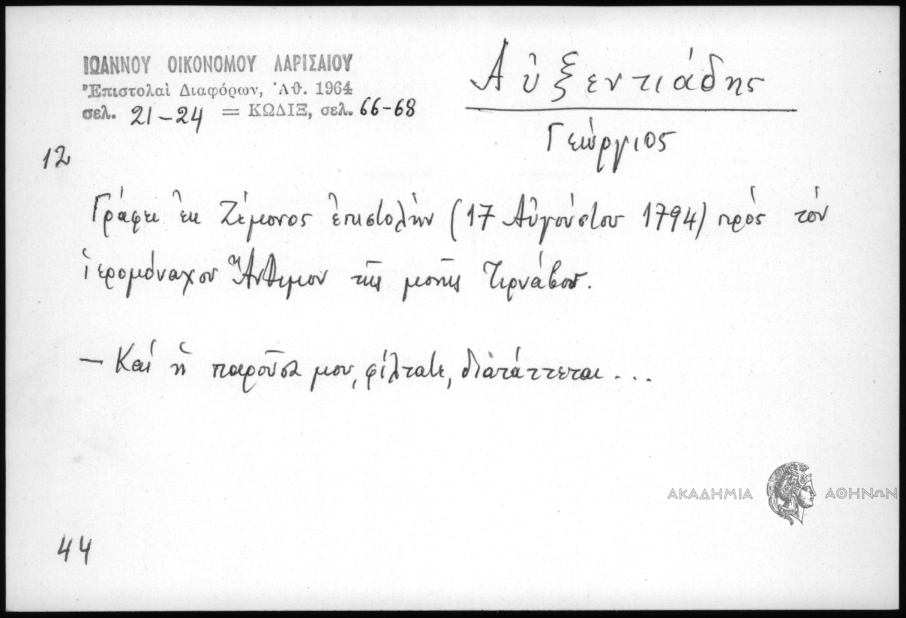 ΙΩΑΝΝΟΥ ΟΙΚΟΝΟΜΟΥ ΛΑΡΙΣΑΙΟΥ
Ἐπιστολαὶ Διαφόρων, Ἀθ. 1964
σελ. 21-24 = ΚΩΔΙΞ, σελ. 66-68
Αὐξεντιάδης
Γεώργιος
12
Γράφει ἐκ Ζέμονος ἐπιστολὴν (17 Αὐγούστου 1794) πρός τόν
ἱερομόναχον Ἄνθιμον τῆς μονῆς Τιρνάβου.
— Καί ἡ παροῦσα μου, φίλτατε, διατάττεται...
ΑΚΑΔΗΜΙΑ ΑΘΗΝΩΝ
44